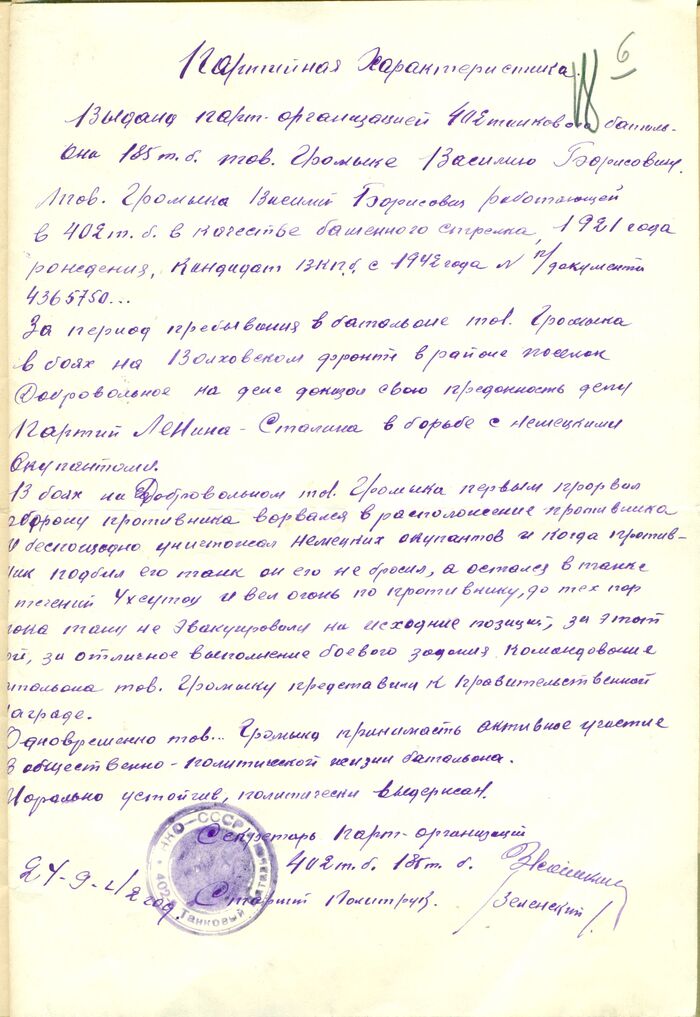 6
18
Партийная Характеристика.
Выдана парт-организацией 402 танкового баталь-
она 185 т.б. тов. Громыке Василию Борисовичу.
тов. Громыка Василий Борисович работающей
в 402 т.б. в качестве башенного стрелка, 1921 года
рождения, Кандидат ВКП.б. с 1942 года N п/документа
4365750...
За период пребывания в батальоне тов. Громыка
в боях на Волховском фронте в районе поселок
Добровольное на деле доказал свою преданность делу
Партий Ленина-Сталина в борьбе с немецкими
окупантами.
В боях на Добровольном тов. Громыка первым прорвал
оборону противника ворвался в расположение противника
и беспощадно уничтожал немецких окупантов и когда против-
ник подбил его танк он его не бросил, а остался в танке
течений 4х суток и вел огонь по противнику, до тех пор
пока танк не эвакуировали на исходние позиций, за этот
й, за отличное выполнение боевого задания Командование
тальона тов. Громыку представили к Правительственной
награде.
Одновременно тов... Громыка принимаеть активное участие
в общественно-политической жизни батальона.
Морально устойчив, политически выдержан.
Секретарь Парт-организаций
402 т.б. 185 т.б.
24-9-42 год. Старший Политрук.
/Зеленский/.
НКО-СССР
402й Танковый